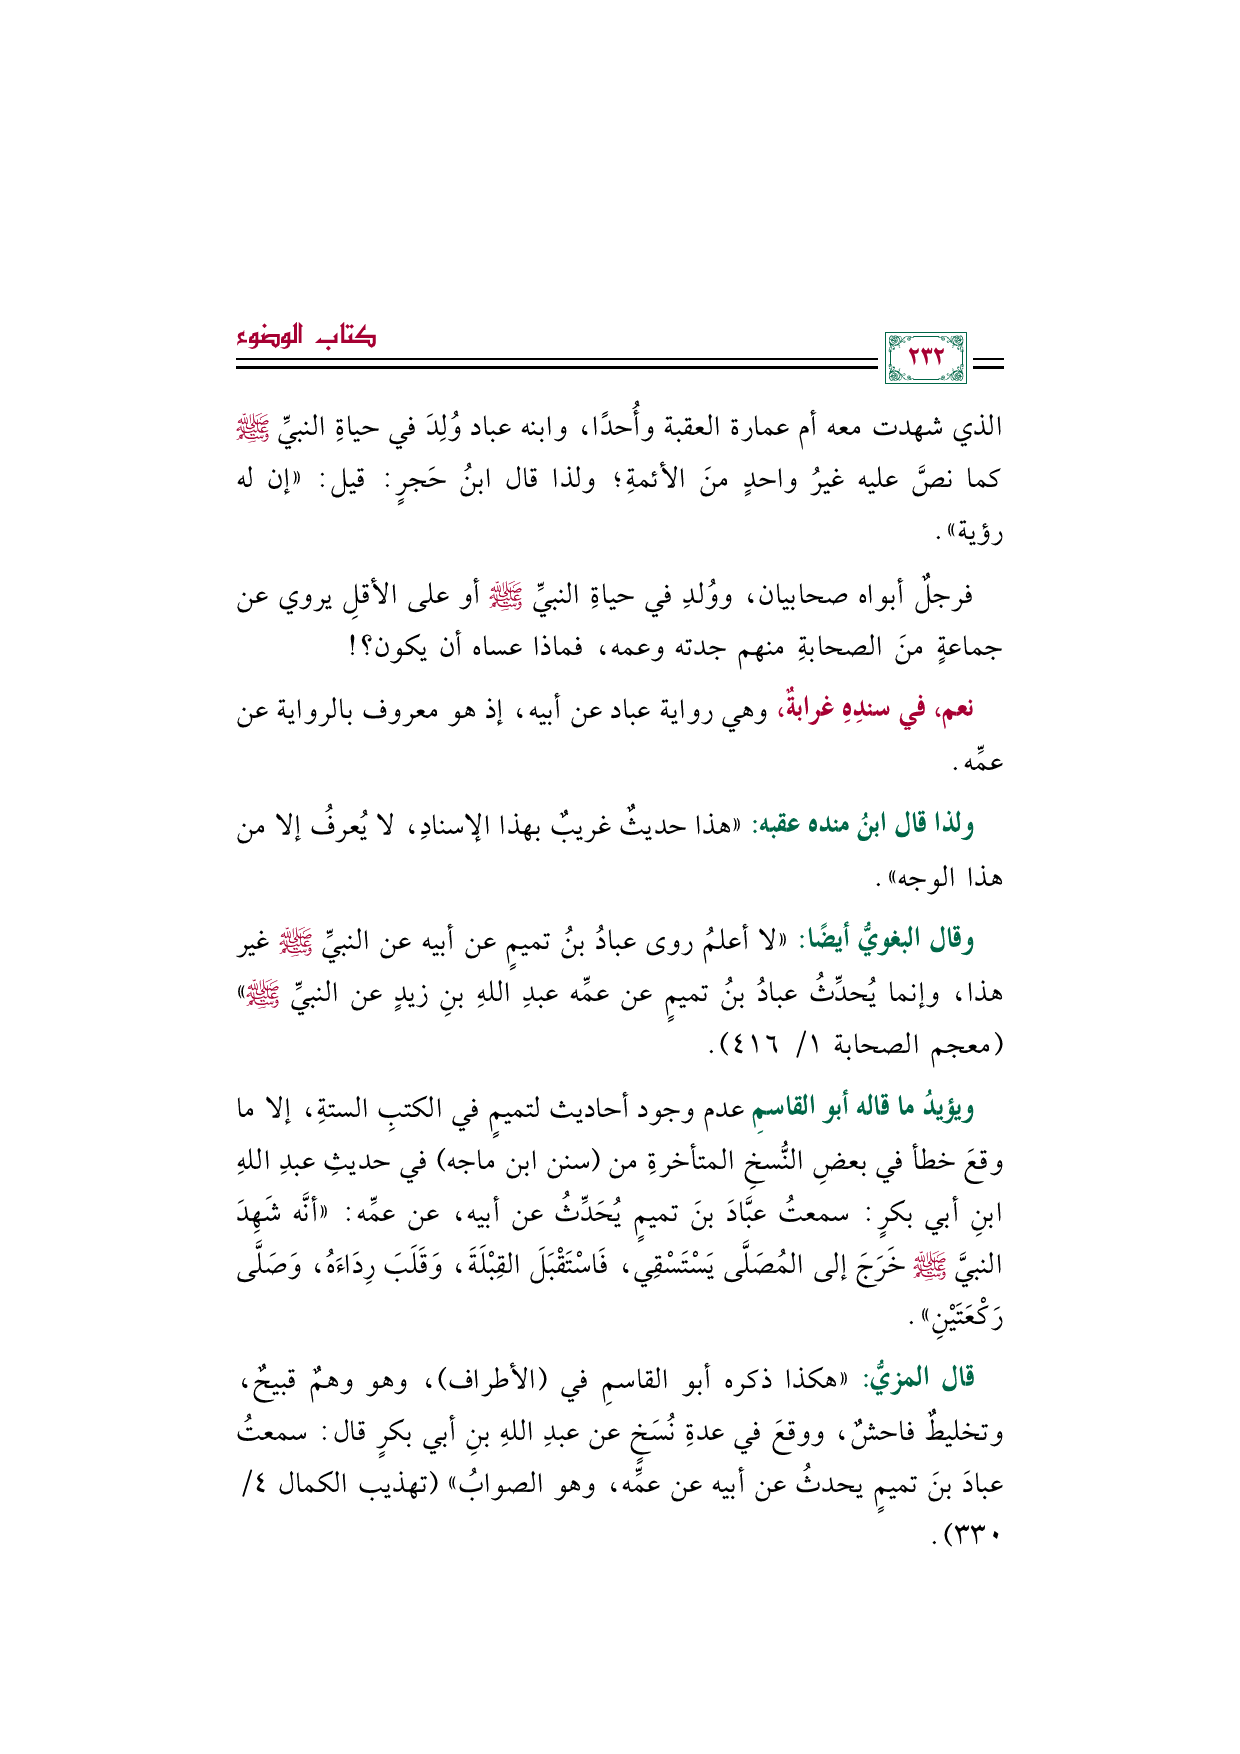 كتاب الوضوء
٢٣٢
الذي شهدت معه أم عمارة العقبة وأُحدًا، وابنه عباد وُلِدَ في حياةِ النبيِّ ﷺ
كما نصَّ عليه غيرُ واحدٍ منَ الأئمةِ؛ ولذا قال ابنُ حَجرٍ: قيل: «إن له
رؤية».
فرجلٌ أبواه صحابيان، ووُلدِ في حياةِ النبيِّ ﷺ أو على الأقلِ يروي عن
جماعةٍ منَ الصحابةِ منهم جدته وعمه، فماذا عساه أن يكون؟!
نعم، في سندِهِ غرابةٌ، وهي رواية عباد عن أبيه، إذ هو معروف بالرواية عن
عمِّه.
ولذا قال ابنُ منده عقبه: «هذا حديثٌ غريبٌ بهذا الإسنادِ، لا يُعرفُ إلا من
هذا الوجه».
وقال البغويُّ أيضًا: «لا أعلمُ روى عبادُ بنُ تميمٍ عن أبيه عن النبيِّ ﷺ غير
هذا، وإنما يُحدِّثُ عبادُ بنُ تميمٍ عن عمِّه عبدِ اللهِ بنِ زيدٍ عن النبيِّ ﷺ»
(معجم الصحابة ١/ ٤١٦).
ويؤيدُ ما قاله أبو القاسمِ عدم وجود أحاديث لتميمٍ في الكتبِ الستةِ، إلا ما
وقعَ خطأ في بعضِ النُّسخِ المتأخرةِ من (سنن ابن ماجه) في حديثِ عبدِ اللهِ
ابنِ أبي بكرٍ: سمعتُ عبَّادَ بنَ تميمٍ يُحَدِّثُ عن أبيه، عن عمِّه: «أنَّه شَهِدَ
النبيَّ ﷺ خَرَجَ إلى المُصَلَّى يَسْتَسْقِي، فَاسْتَقْبَلَ القِبْلَةَ، وَقَلَبَ رِدَاءَهُ، وَصَلَّى
رَكْعَتَيْنِ».
قال المزيُّ: «هكذا ذكره أبو القاسمِ في (الأطراف)، وهو وهمٌ قبيحٌ،
وتخليطٌ فاحشٌ، ووقعَ في عدةِ نُسَخٍ عن عبدِ اللهِ بنِ أبي بكرٍ قال: سمعتُ
عبادَ بنَ تميمٍ يحدثُ عن أبيه عن عمِّه، وهو الصوابُ» (تهذيب الكمال ٤/
٣٣٠).